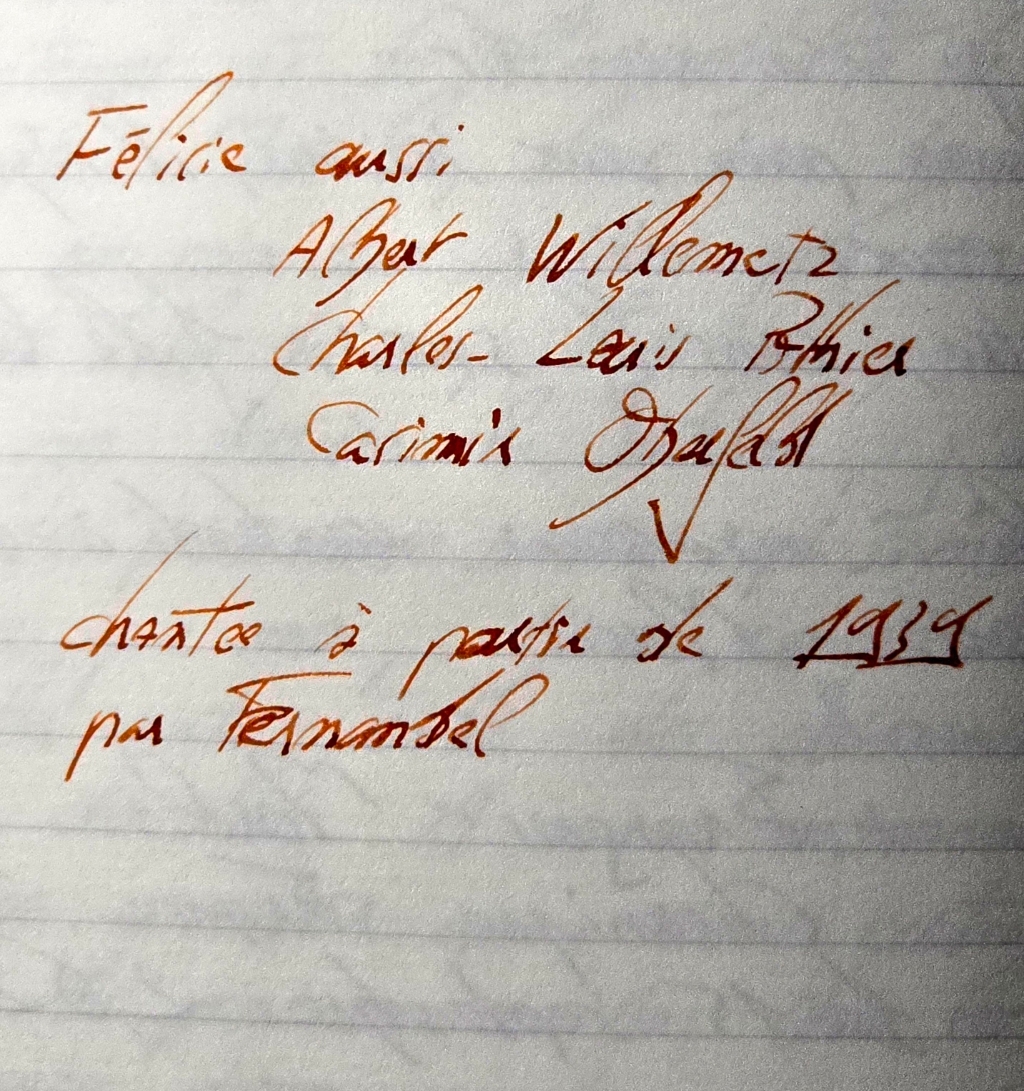 Félicie aussi
Albert Willemetz
Charles-Louis Pothier
Casimir Oberfeld
chantée à partir de 1939
par Fernandel